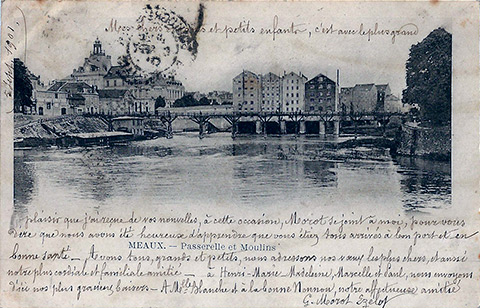 Mes chers grands et petits enfants, c'est avec le plus grand
plaisir que j'ai reçue de vos nouvelles, à cette occasion, Morot se joint à moi, pour vous
dire que nous avons été heureux d'apprendre que vous étiez tous arrivés à bon port et en
MEAUX. — Passerelle et Moulins
bonne santé — A vous tous, grands et petits, nous adressons nos vœux les plus chers, et aussi
notre plus cordiale et familiale amitié — à Henri-Marie, Madeleine, Marcelle et Paul, nous envoyons
d'ici nos plus gracieux baisers — A Mlle Blanche et à la bonne Nannon, notre affectueuse amitié
G. Morot